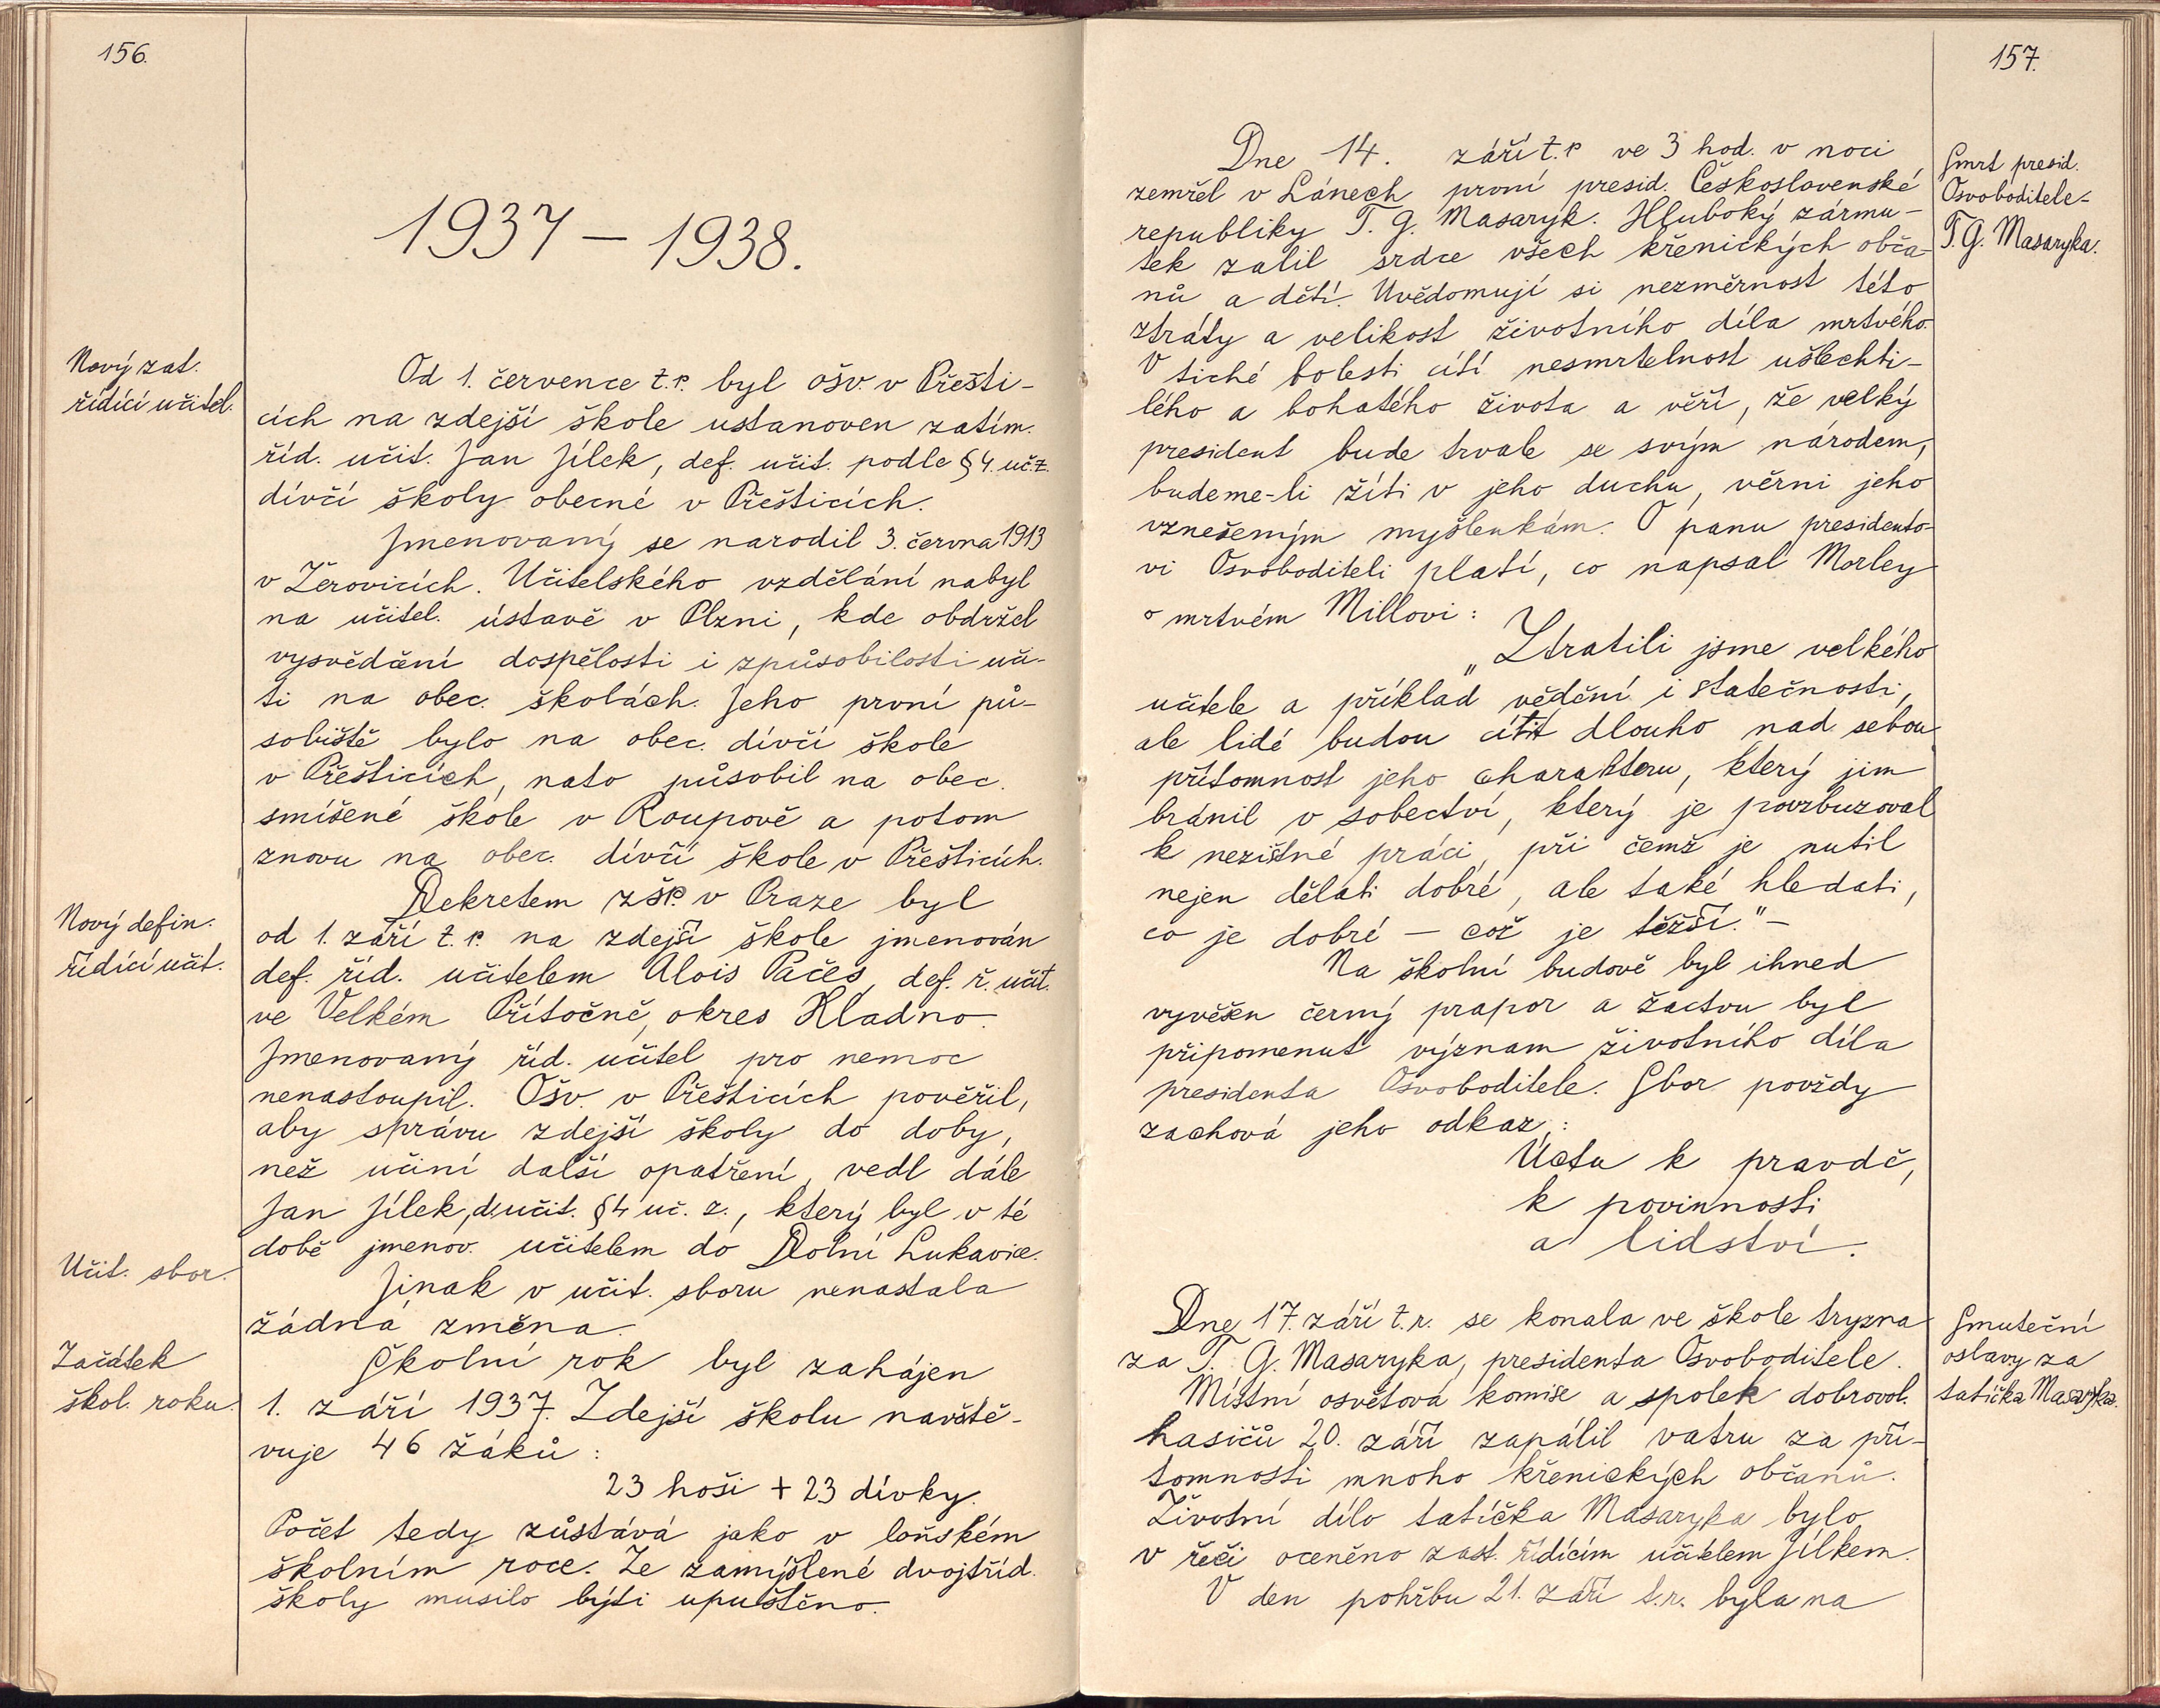 156.
1937 – 1938.
Nový zat.
řídící učitel.
Od 1. července t.r. byl ošv. v Přešti-
cích na zdejší škole ustanoven zatím.
říd. učit. Jan Jílek, def. učit. podle § 4. uč.z.
dívčí školy obecné v Přešticích.
Jmenovaný se narodil 3. června 1913
v Žerovicích. Učitelského vzdělání nabyl
na učitel. ústavě v Plzni, kde obdržel
vysvědčení dospělosti i způsobilosti uči-
ti na obec. školách. Jeho první pů-
sobiště bylo na obec. dívčí škole
v Přešticích, nato působil na obec.
smíšené škole v Roupově a potom
znovu na obec. dívčí škole v Přešticích.
Nový defin.
řídící učit.
Dekretem zšr. v Praze byl
od 1. září t.r. na zdejší škole jmenován
def. říd. učitelem Alois Pačes, def. ř. učit.
ve Velkém Přítočně, okres Kladno.
Jmenovaný říd. učitel pro nemoc
nenastoupil. Ošv. v Přešticích pověřil,
aby správu zdejší školy do doby,
než učiní další opatření, vedl dále
Jan Jílek, d.učit. § 4 uč. z., který byl v té
době jmenov. učitelem do Dolní Lukavice.
Učit. sbor.
Jinak v učit. sboru nenastala
žádná změna.
Začátek
škol. roku.
Školní rok byl zahájen
1. září 1937. Zdejší školu navště-
vuje 46 žáků :
23 hoši + 23 dívky.
Počet tedy zůstává jako v loňském
školním roce. Ze zamýšlené dvojtříd.
školy musilo býti upuštěno.
157.
Smrt presid.
Osvoboditele-
T. G. Masaryka.
Dne 14. září t.r ve 3 hod. v noci
zemřel v Lánech první presid. Československé
republiky T. G. Masaryk. Hluboký zármu-
tek zalil srdce všech křenických obča-
nů a dětí. Uvědomují si nezměrnost této
ztráty a velikost životního díla mrtvého.
V tiché bolesti cítí nesmrtelnost ušlechti-
lého a bohatého života a věří, že velký
president bude trvale se svým národem,
budeme-li žíti v jeho duchu, věrni jeho
vznešeným myšlenkám. O panu presidento-
vi Osvoboditeli platí, co napsal Morley
o mrtvém Millovi :
„Ztratili jsme velkého
učitele a příklad vědění i statečnosti,
ale lidé budou cítit dlouho nad sebou
přítomnost jeho charakteru, který jim
bránil v sobectví, který je povzbuzoval
k nezištné práci, při čemž je nutil
nejen dělati dobré, ale také hledati,
co je dobré – což je těžší." –
Na školní budově byl ihned
vyvěšen černý prapor a žactvu byl
připomenut význam životního díla
presidenta Osvoboditele. Sbor povždy
zachová jeho odkaz, :
Úctu k pravdě,
k povinnosti
a lidství.
Smuteční
oslavy za
tatíčka Masaryka.
Dne 17. září t.r. se konala ve škole tryzna
za T. G. Masaryka, presidenta Osvoboditele.
Místní osvětová komise a spolek dobrovol.
hasičů 20. září zapálil vatru za pří-
tomnosti mnoho křenických občanů.
Životní dílo tatíčka Masaryka bylo
v řeči oceněno zast. řídícím učitelem Jílkem.
V den pohřbu 21. září t.r. byla na